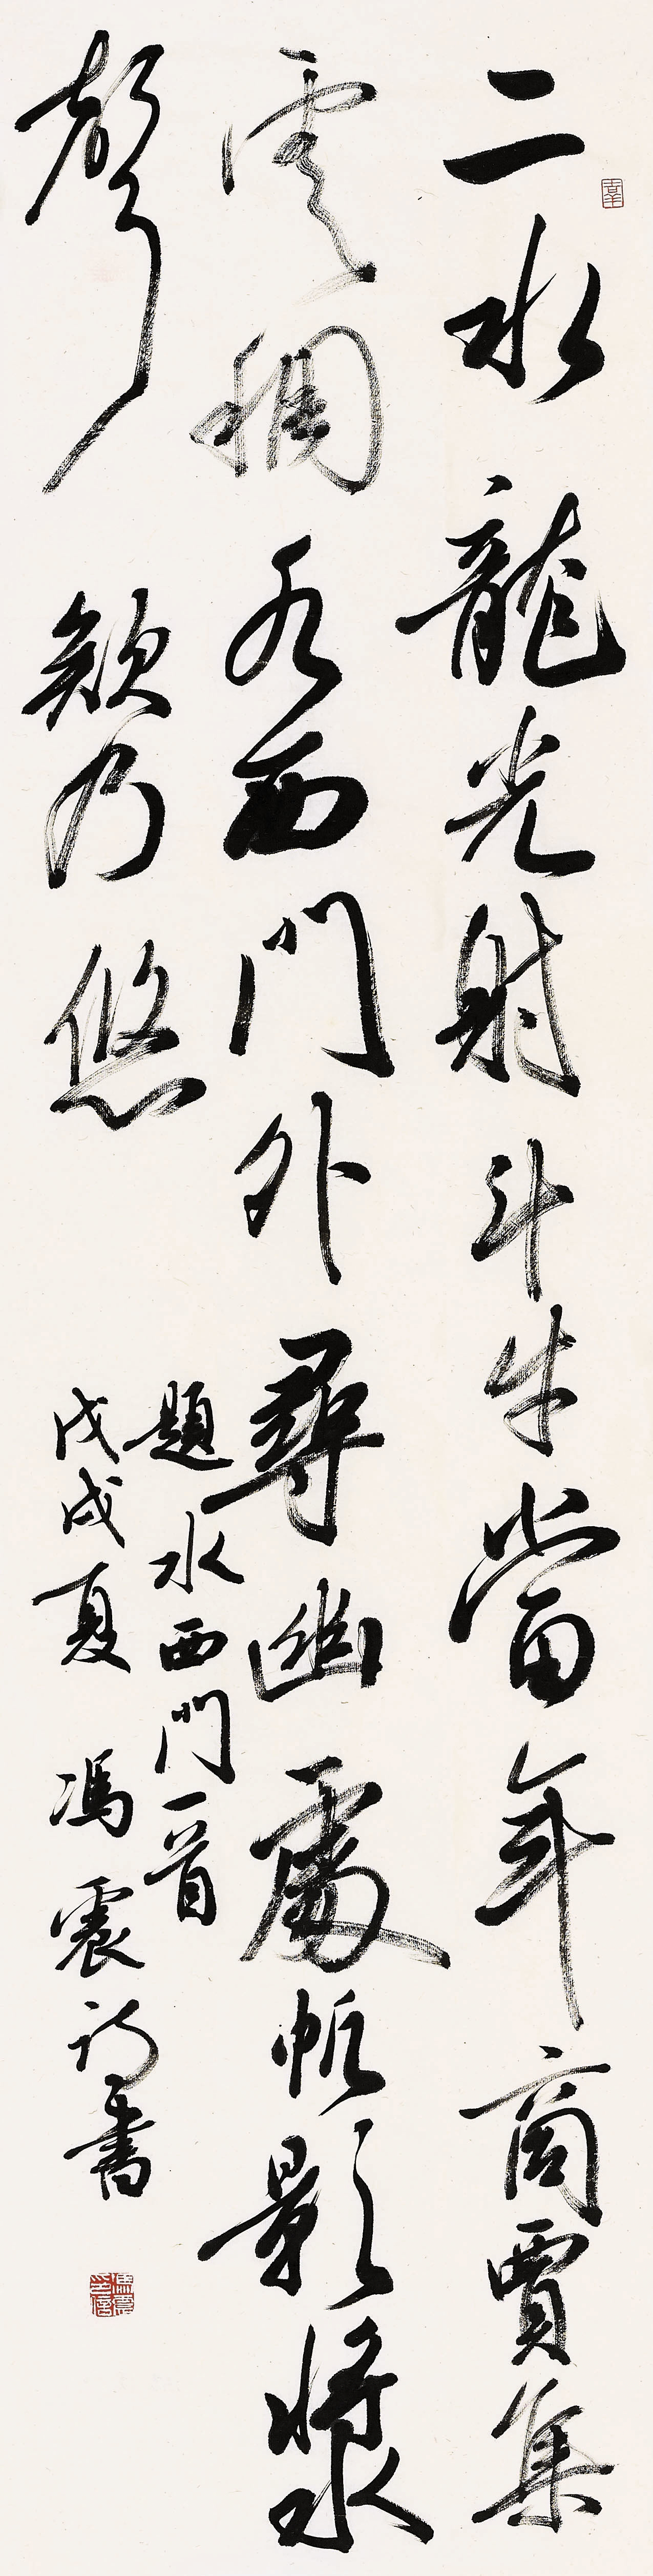 二水龍光射斗牛當年商賈集
雲稠水西門外尋幽處帆影漿
聲欸乃悠
題水西門一首
戊戌夏 馮震詩書